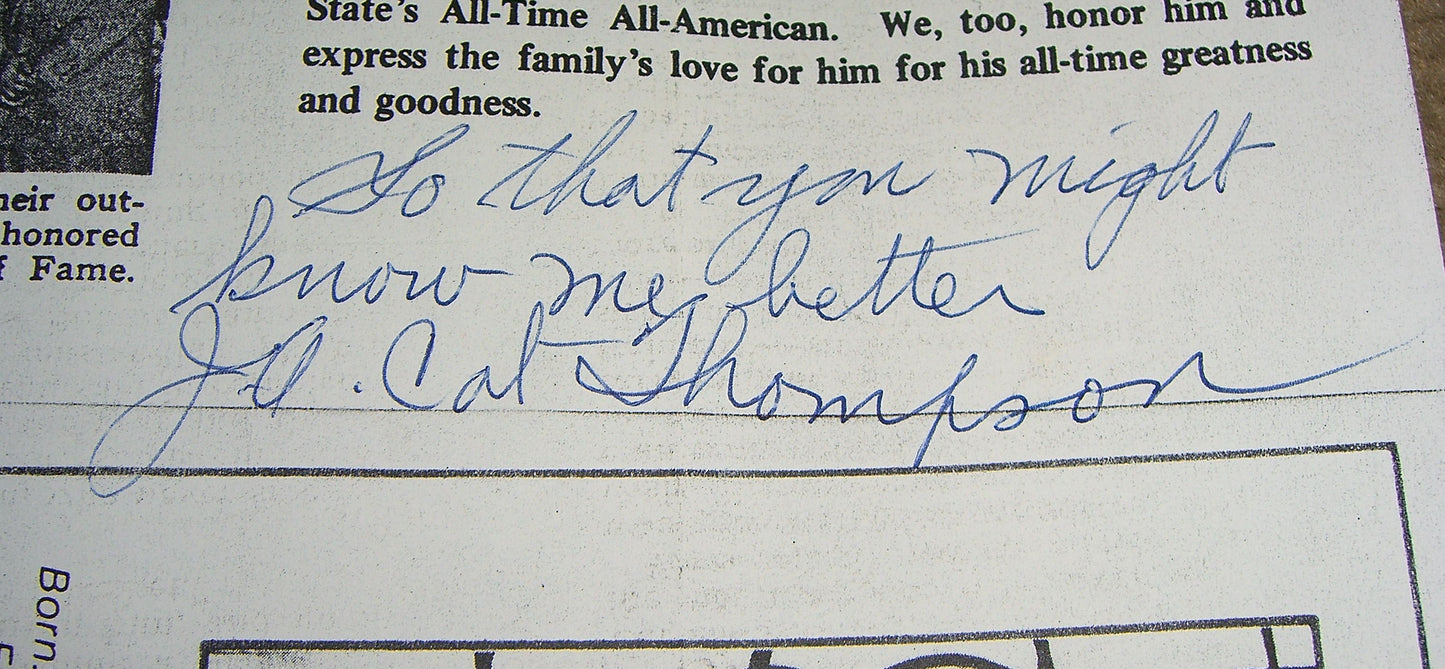 State's All-Time All-American. We, too, honor him and
express the family's love for him for his all-time greatness
and goodness.
heir out-
honored
f Fame.
So that you might
know me better
J.A. Cal Thompson
Born.